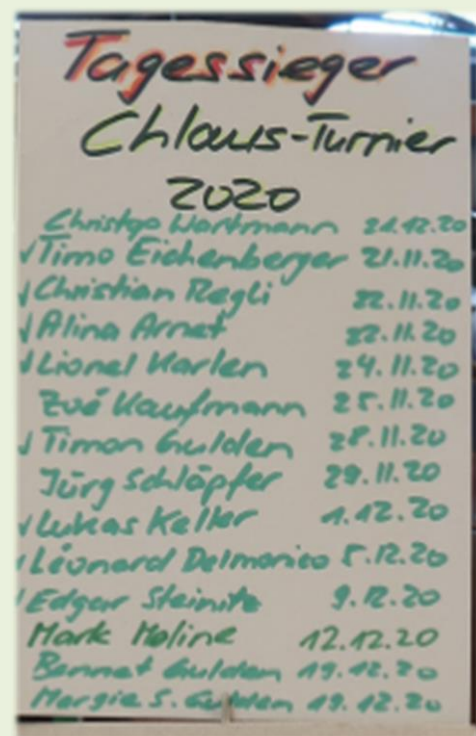 Tagessieger
Chlaus-Turnier
2020
Christa Wartmann
Timo Eichenberger 21.11.20
Christian Regli 22.11.20
Alina Arnet 22.11.20
Lionel Karlen 24.11.20
Zoé Kaufmann 25.11.20
Timon Gulden 28.11.20
Jürg Schläpfer 29.11.20
Lukas Keller 1.12.20
Léonard Delmonico 5.12.20
Edgar Steinitz 9.12.20
Mark Moline 12.12.20
Bennet Gulden 19.12.20
Margie S. Gulden 19.12.20